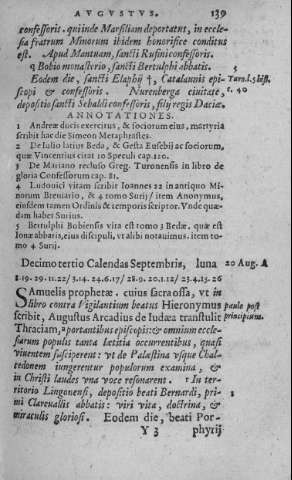 AVGVSTVS. 139
confessoris. qui inde Marsiliam deportatus, in eccle-
sia fratrum Minorum ibidem honorifice conditus
est. Apud Mantuam, sancti Rufini confessoris.
Bobio monasterio, sancti Bertulphi abbatis. 5
Eodem die, sancti Elaphij †, Catalaunis epi- Turo.l.5 hist.
scopi & confessoris. Nurenbergæ ciuitate, c. 40
depositio sancti Sebaldi confessoris, filij regis Daciæ.
ANNOTATIONES.
1 Andreæ ducis exercitus, & sociorum eius, martyria
scribit hac die Simeon Metaphrastes.
2 De Iulio latius Beda, & Gesta Eusebij ac sociorum,
quæ Vincentius citat 10 Speculi cap. 120.
3 De Mariano recluso Greg. Turonensis in libro de
gloria Confessorum cap. 81.
4 Ludouici vitam scribit Ioannes 22 in antiquo Mi-
norum Breuiario, & 4 tomo Surij: item Anonymus,
eiusdem tamen Ordinis & temporis scriptor. Vnde quæ-
dam habet Surius.
5 Bertulphi Bobiensis vita est tomo 3 Bedæ, quæ est
Ionæ abbatis, eius discipuli, vt alibi notauimus. item to-
mo 4 Surij.
Decimotertio Calendas Septembris, luna 20 Aug. A
8.19.29.11.22/3.14.24.6.17/28.9.20.1.12/23.4.15.26
SAmuelis prophetæ. cuius sacra ossa, vt in
libro contra Vigilantium beatus Hieronymus paulo post
scribit, Augustus Arcadius de Iudæa transtulit principium.
Thraciam, a portantibus episcopis: & omnium eccle-
siarum populis tanta lætitia occurrentibus, quasi
viuentem susciperent: vt de Palæstina vsque Chal-
cedonem iungerentur populorum examina, &
in Christi laudes vna voce resonarent. In ter-
ritorio Lingonensi, depositio beati Bernardi, pri-
mi Clareuallis abbatis: viri vita, doctrina, &
miraculis gloriosi. Eodem die, beati Por-
Y 3 phyrij